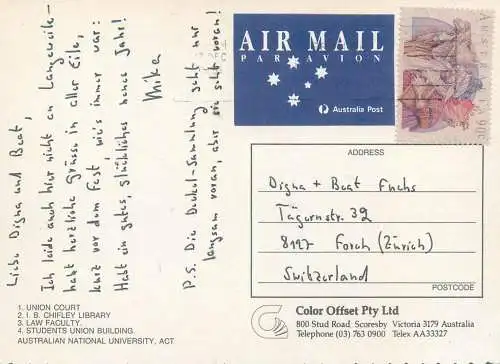 Liebe Digna und Beat,
Ich leide auch hier nicht an Langeweile -
habt herzliche Grüsse in aller Eile,
kurz vor dem Fest, wie's immer war:
Habt ein gutes, glückliches neues Jahr!
Mika
P.S. Die Deckel-Sammlung geht nur
langsam voran, aber sie geht voran!
1. UNION COURT
2. I. B. CHIFLEY LIBRARY
3. LAW FACULTY.
4. STUDENTS UNION BUILDING.
AUSTRALIAN NATIONAL UNIVERSITY, ACT
AIR MAIL
PAR AVION
Australia Post
AUSTRALIA 90c
ADDRESS
Digna + Beat Fuchs
Tägernstr. 32
8127 Forch (Zürich)
Switzerland
POSTCODE
Color Offset Pty Ltd
800 Stud Road, Scoresby Victoria 3179 Australia
Telephone (03) 763 0900 Telex AA33327